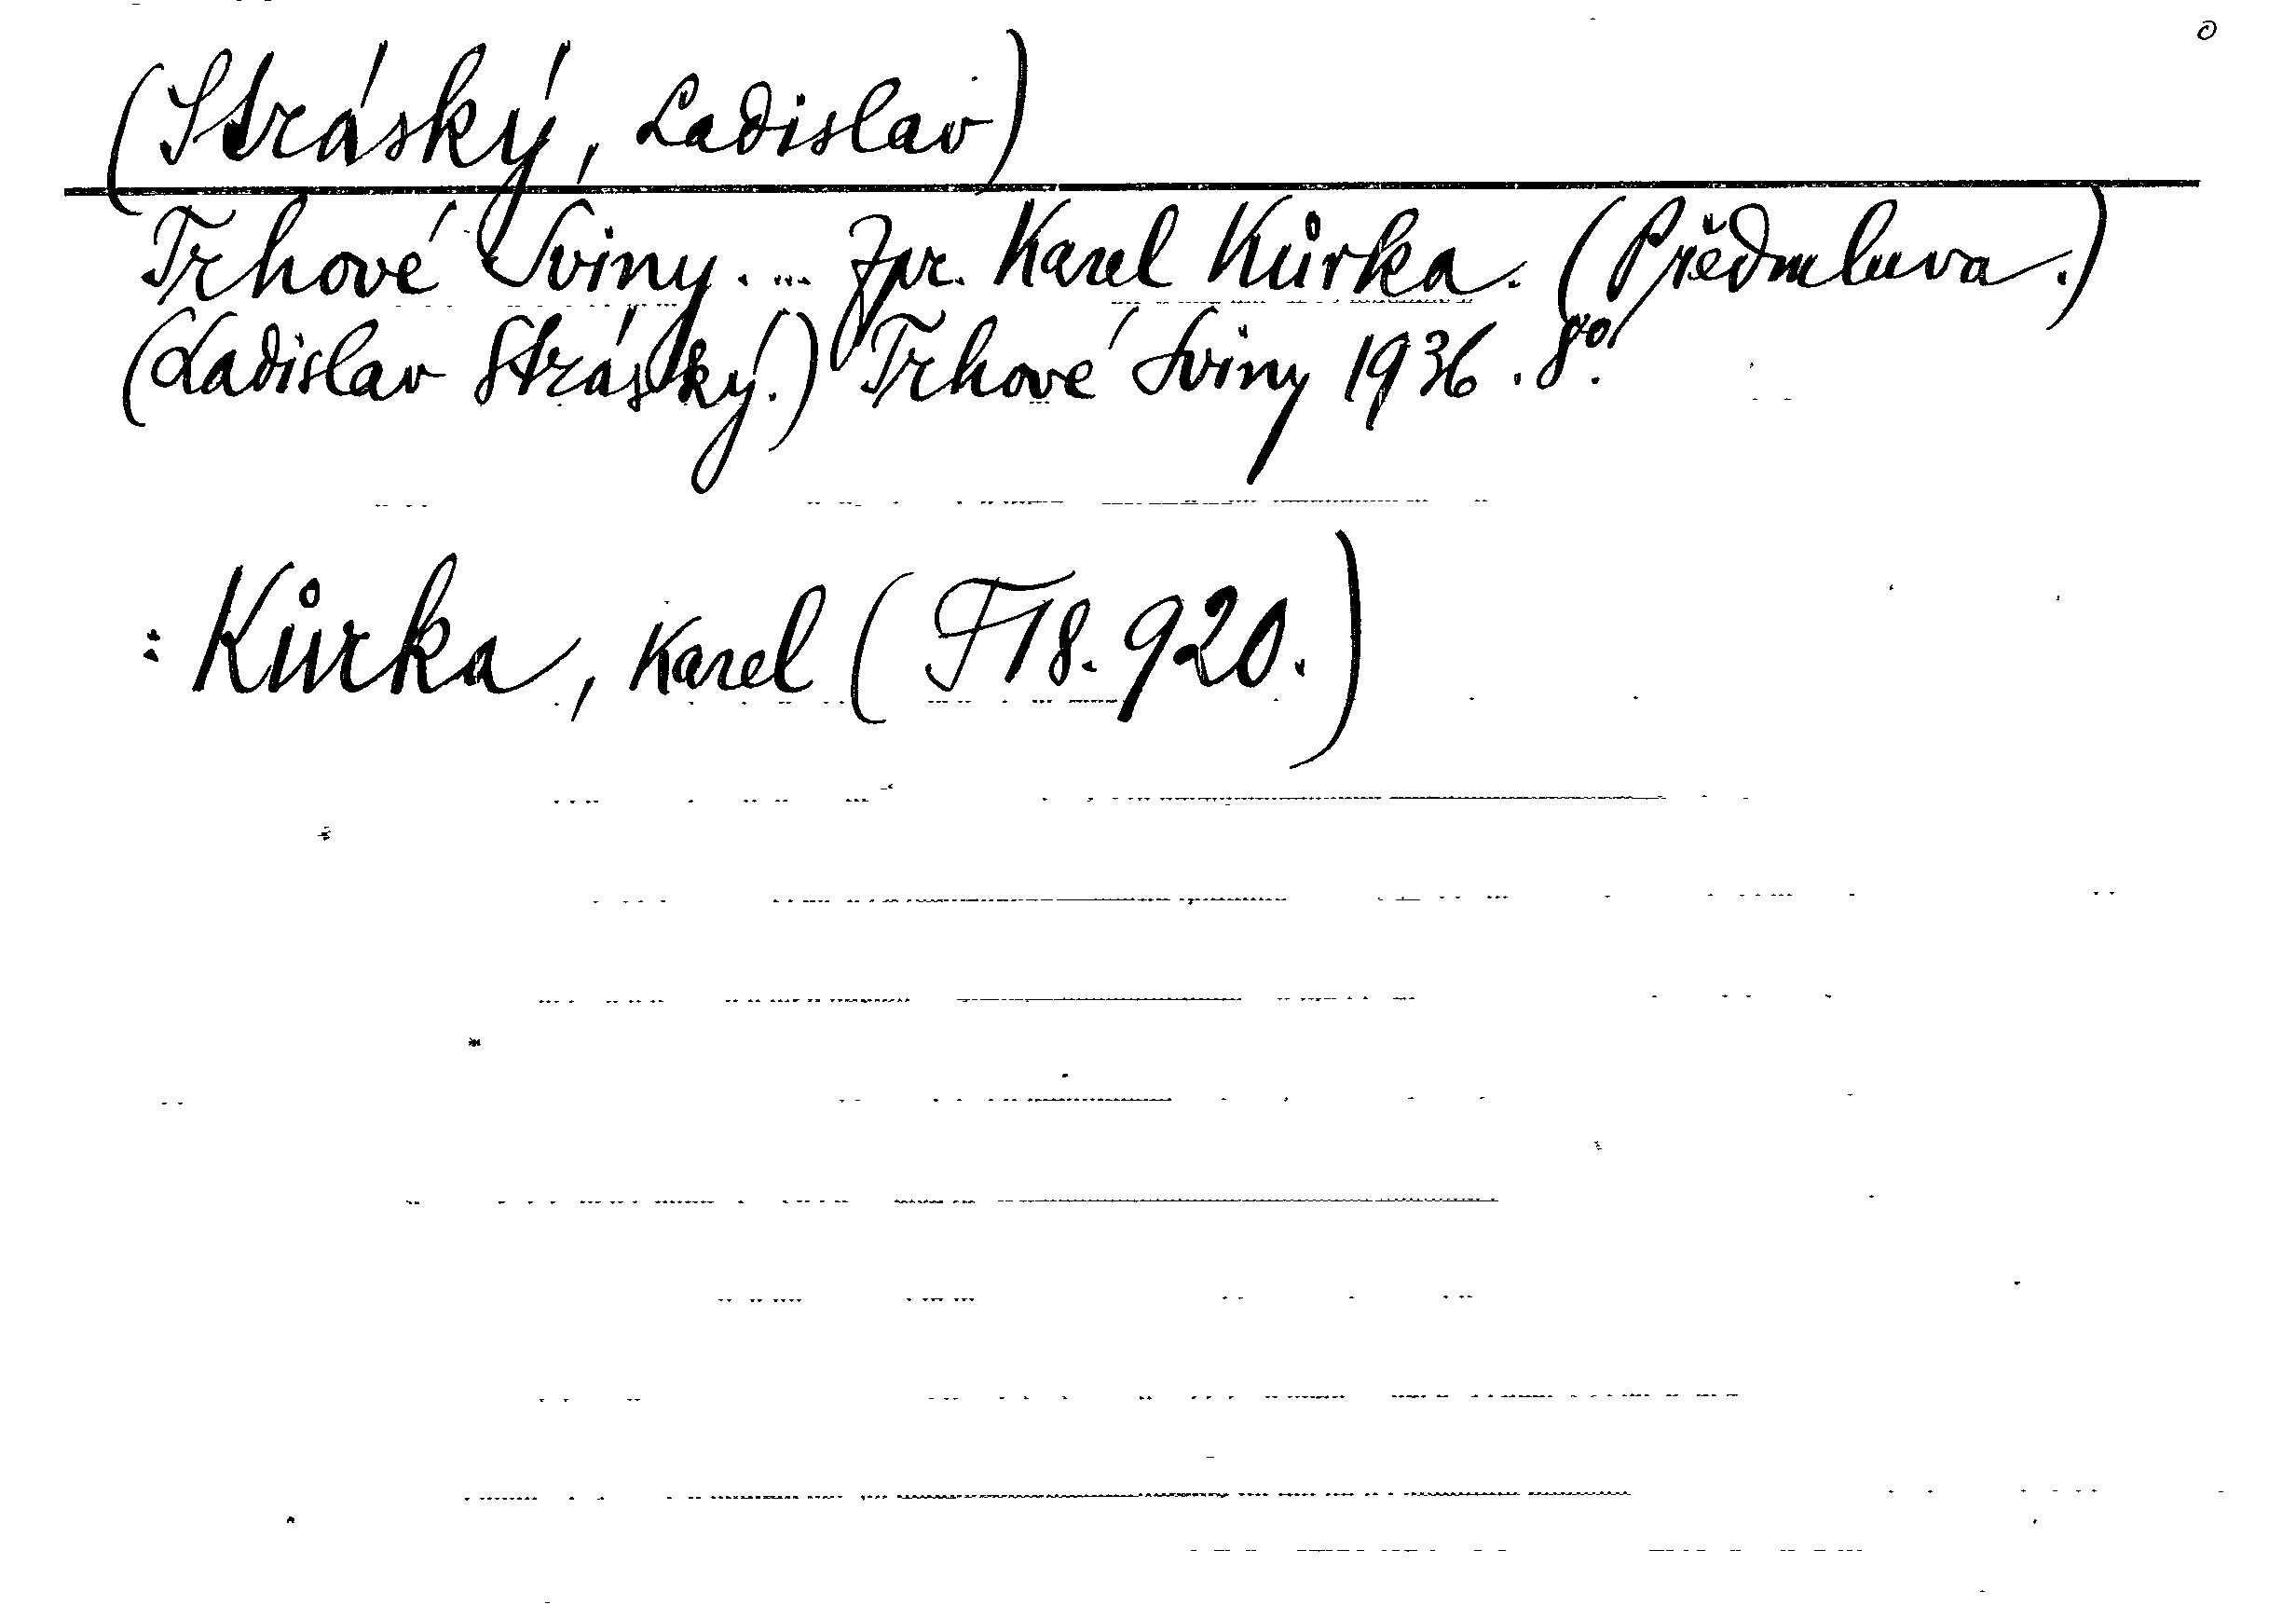 (Stráský, Ladislav)
Trhové Sviny. ... Zpr. Karel Kůrka. (Předmluva.)
(Ladislav Stráský.) Trhové Sviny 1936. 8º.
: Kůrka, Karel (F18.920.)